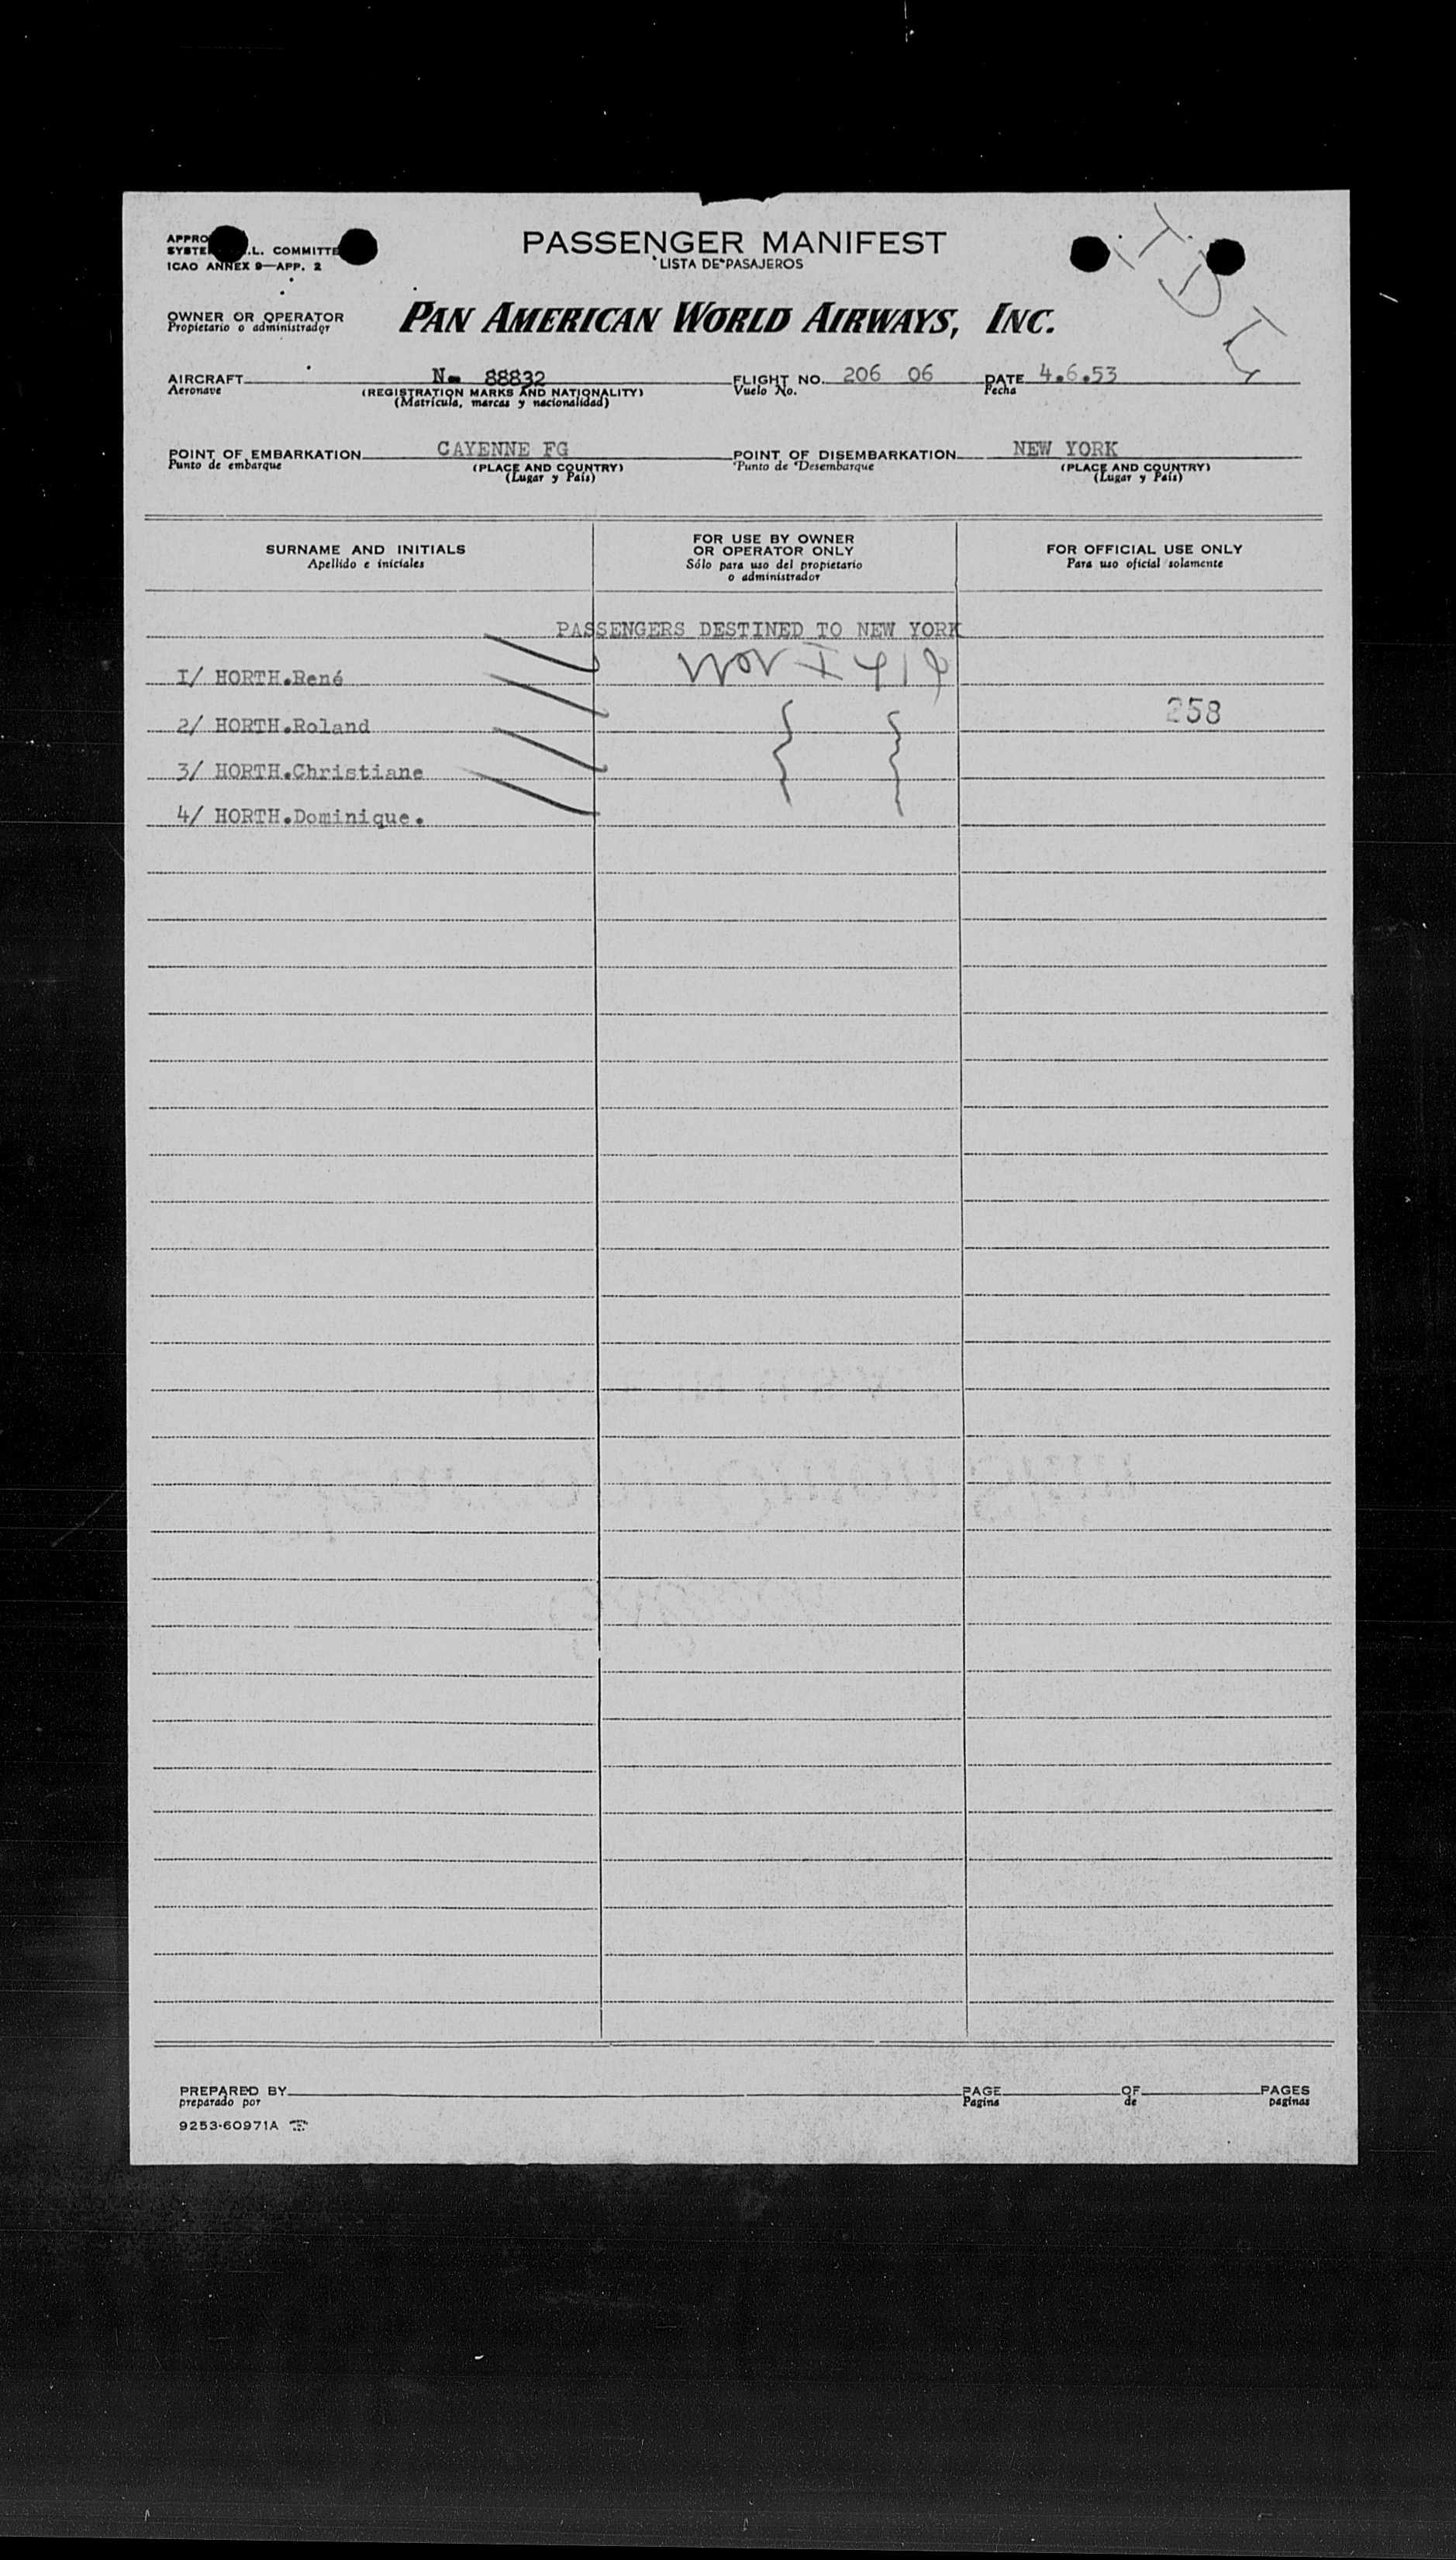 APPRO
SYSTE .L. COMMITTE
ICAO ANNEX 9—APP. 2
PASSENGER MANIFEST
LISTA DE PASAJEROS
OWNER OR OPERATOR
Propietario o administrador
PAN AMERICAN WORLD AIRWAYS, INC.
AIRCRAFT N- 88832 FLIGHT NO. 206 06 DATE 4.6.53
Aeronave (REGISTRATION MARKS AND NATIONALITY) Vuelo No. Fecha
(Matrícula, marcas y nacionalidad)
POINT OF EMBARKATION CAYENNE FG POINT OF DISEMBARKATION NEW YORK
Punto de embarque (PLACE AND COUNTRY) Punto de Desembarque (PLACE AND COUNTRY)
(Lugar y País) (Lugar y País)
SURNAME AND INITIALS
Apellido e iniciales
FOR USE BY OWNER
OR OPERATOR ONLY
Sólo para uso del propietario
o administrador
FOR OFFICIAL USE ONLY
Para uso oficial solamente
PASSENGERS DESTINED TO NEW YORK
I/ HORTH.René
2/ HORTH.Roland 258
3/ HORTH.Christiane
4/ HORTH.Dominique.
PREPARED BY PAGE OF PAGES
preparado por Pagina de paginas
9253-60971A